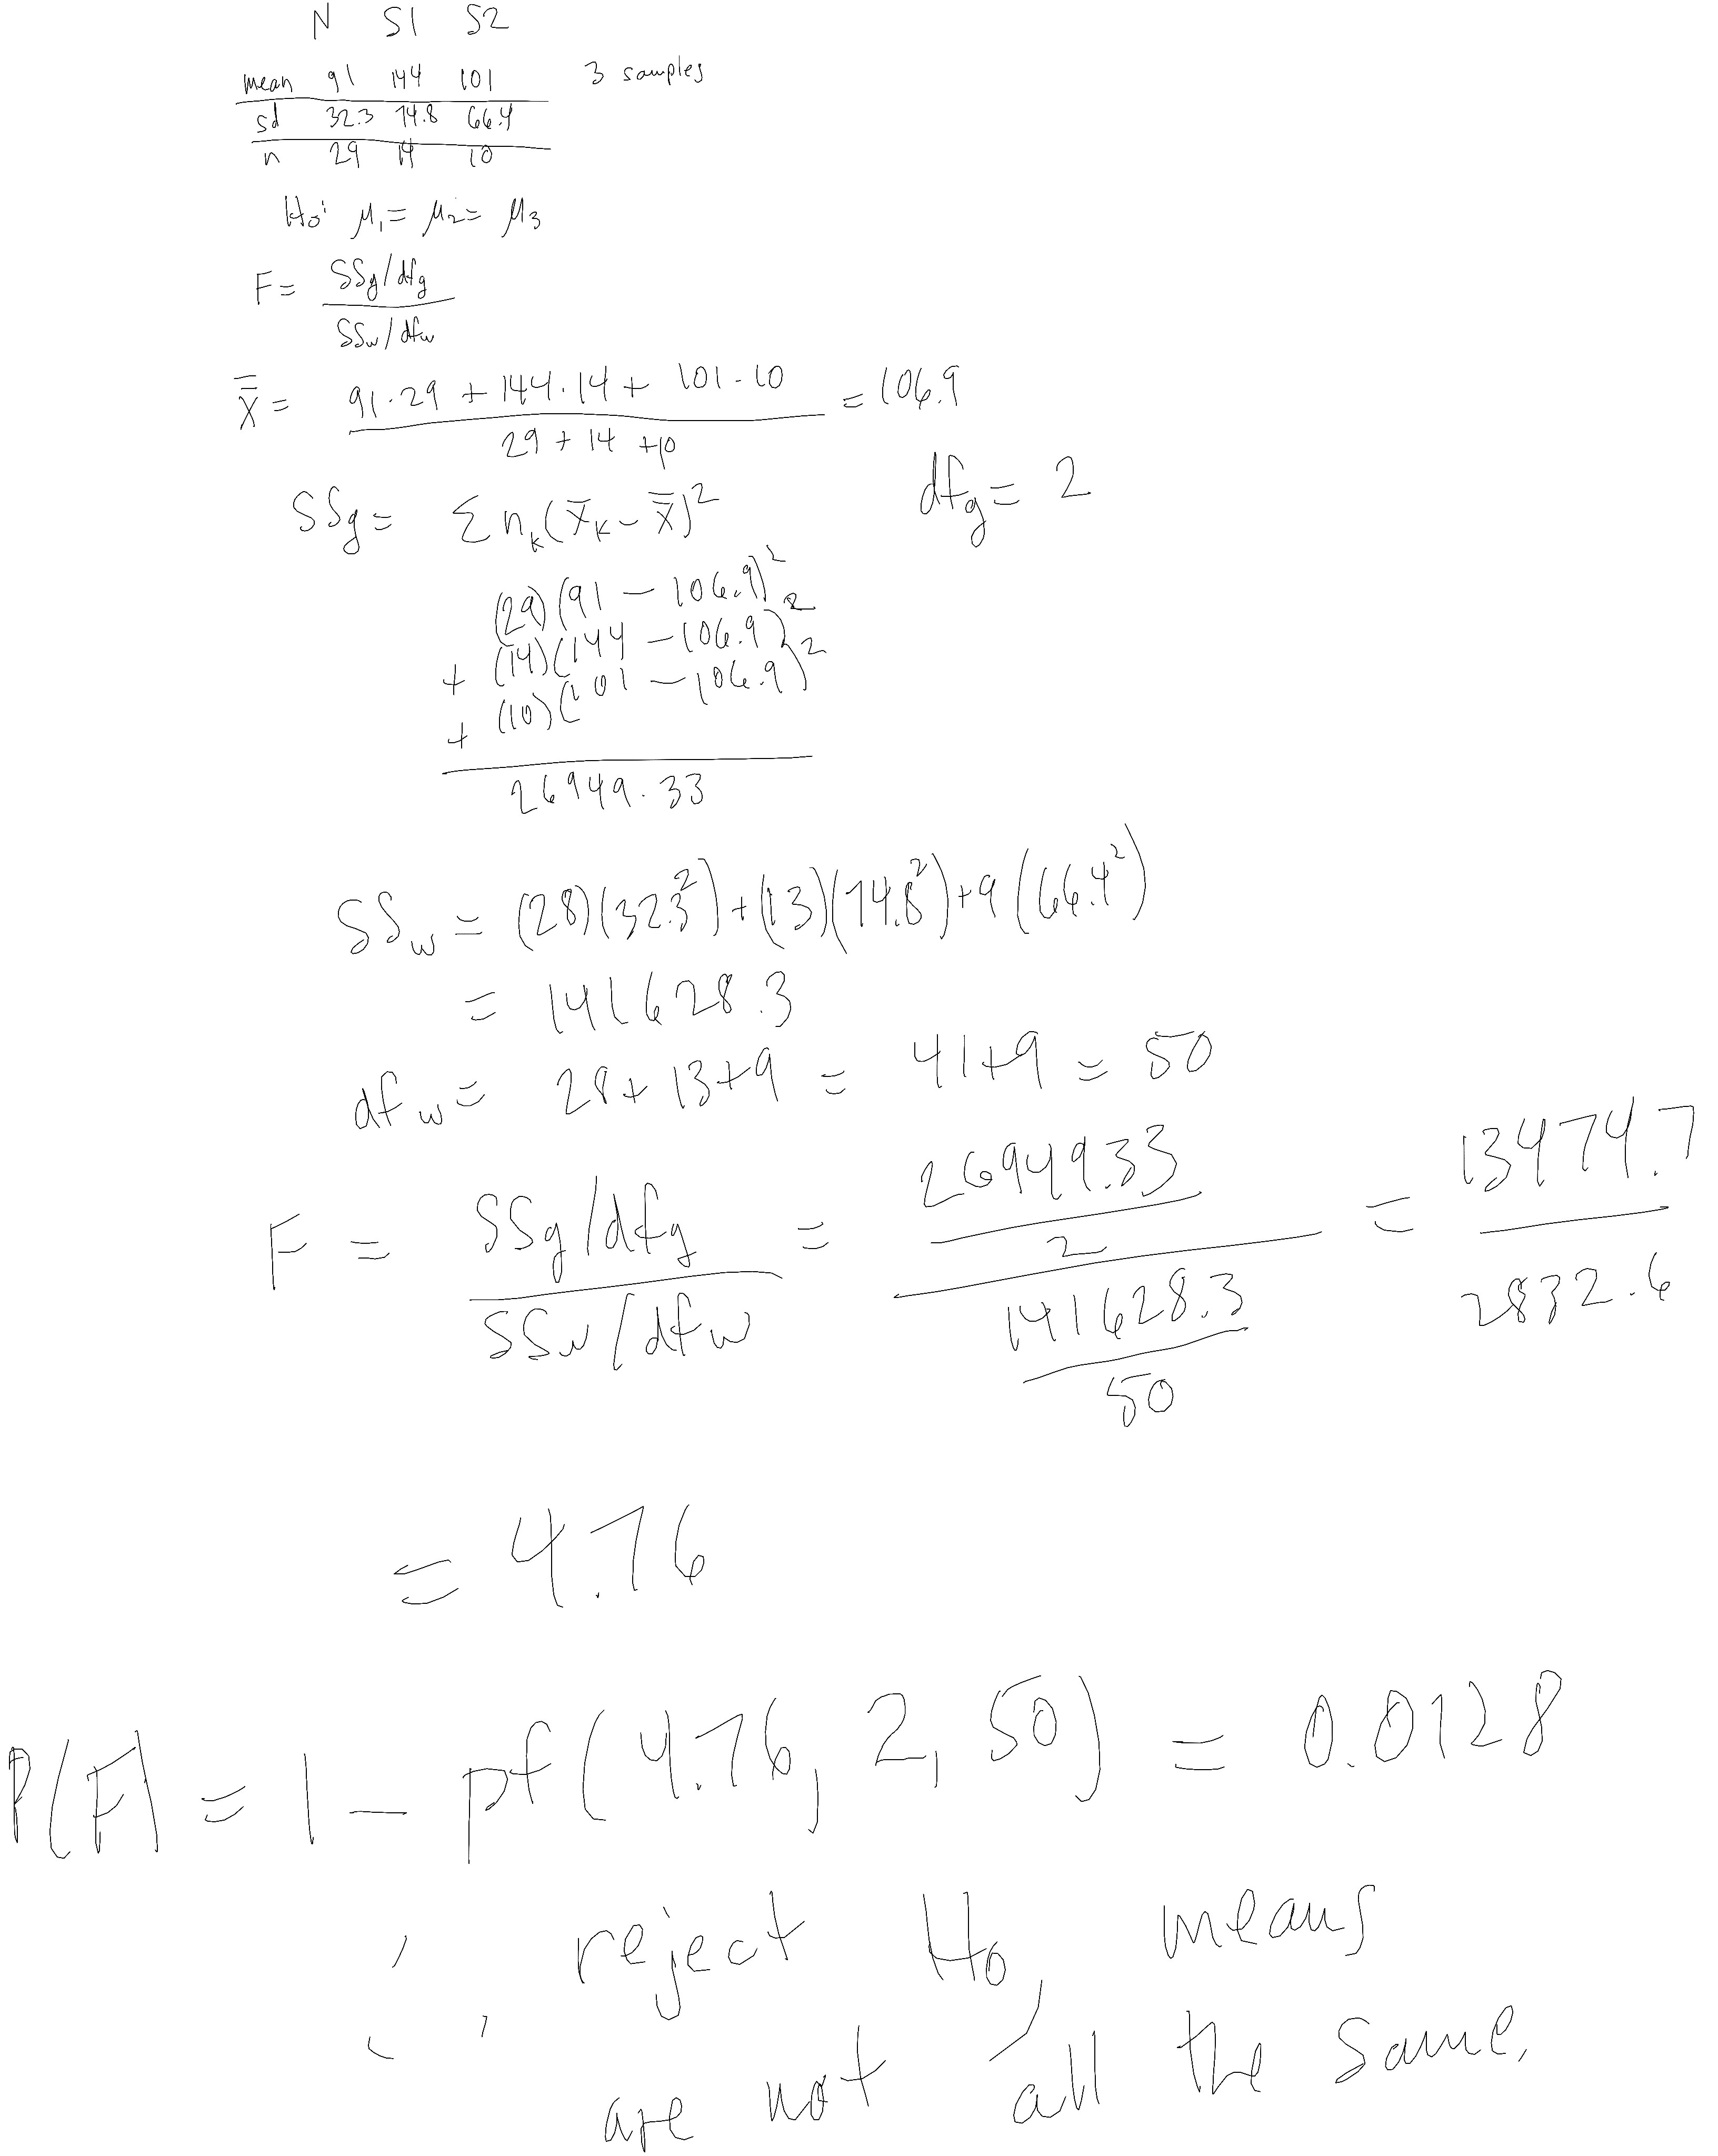 N S1 S2
mean 91 144 101 3 samples
sd 32.3 74.8 66.4
n 29 14 10
H₀: μ₁ = μ₂ = μ₃
F = SSg/dfg
SSw/dfw
x̿ = 91·29 + 144·14 + 101·10 = 106.9
29 + 14 + 10
SSg = Σ nₖ(x̄ₖ − x̿)² dfg = 2
(29)(91 − 106.9)²
+ (14)(144 − 106.9)²
+ (10)(101 − 106.9)²
26949.33
SSw = (28)(32.3²) + (13)(74.8²) + 9(66.4²)
= 141628.3
dfw = 28 + 13 + 9 = 41 + 9 = 50
F = SSg/dfg = 26949.33 = 13474.7
2
SSw/dfw 141628.3 2832.6
50
= 4.76
P(F) = 1 − pf(4.76, 2, 50) = 0.0128
∴ reject H₀, means
are not all the same.